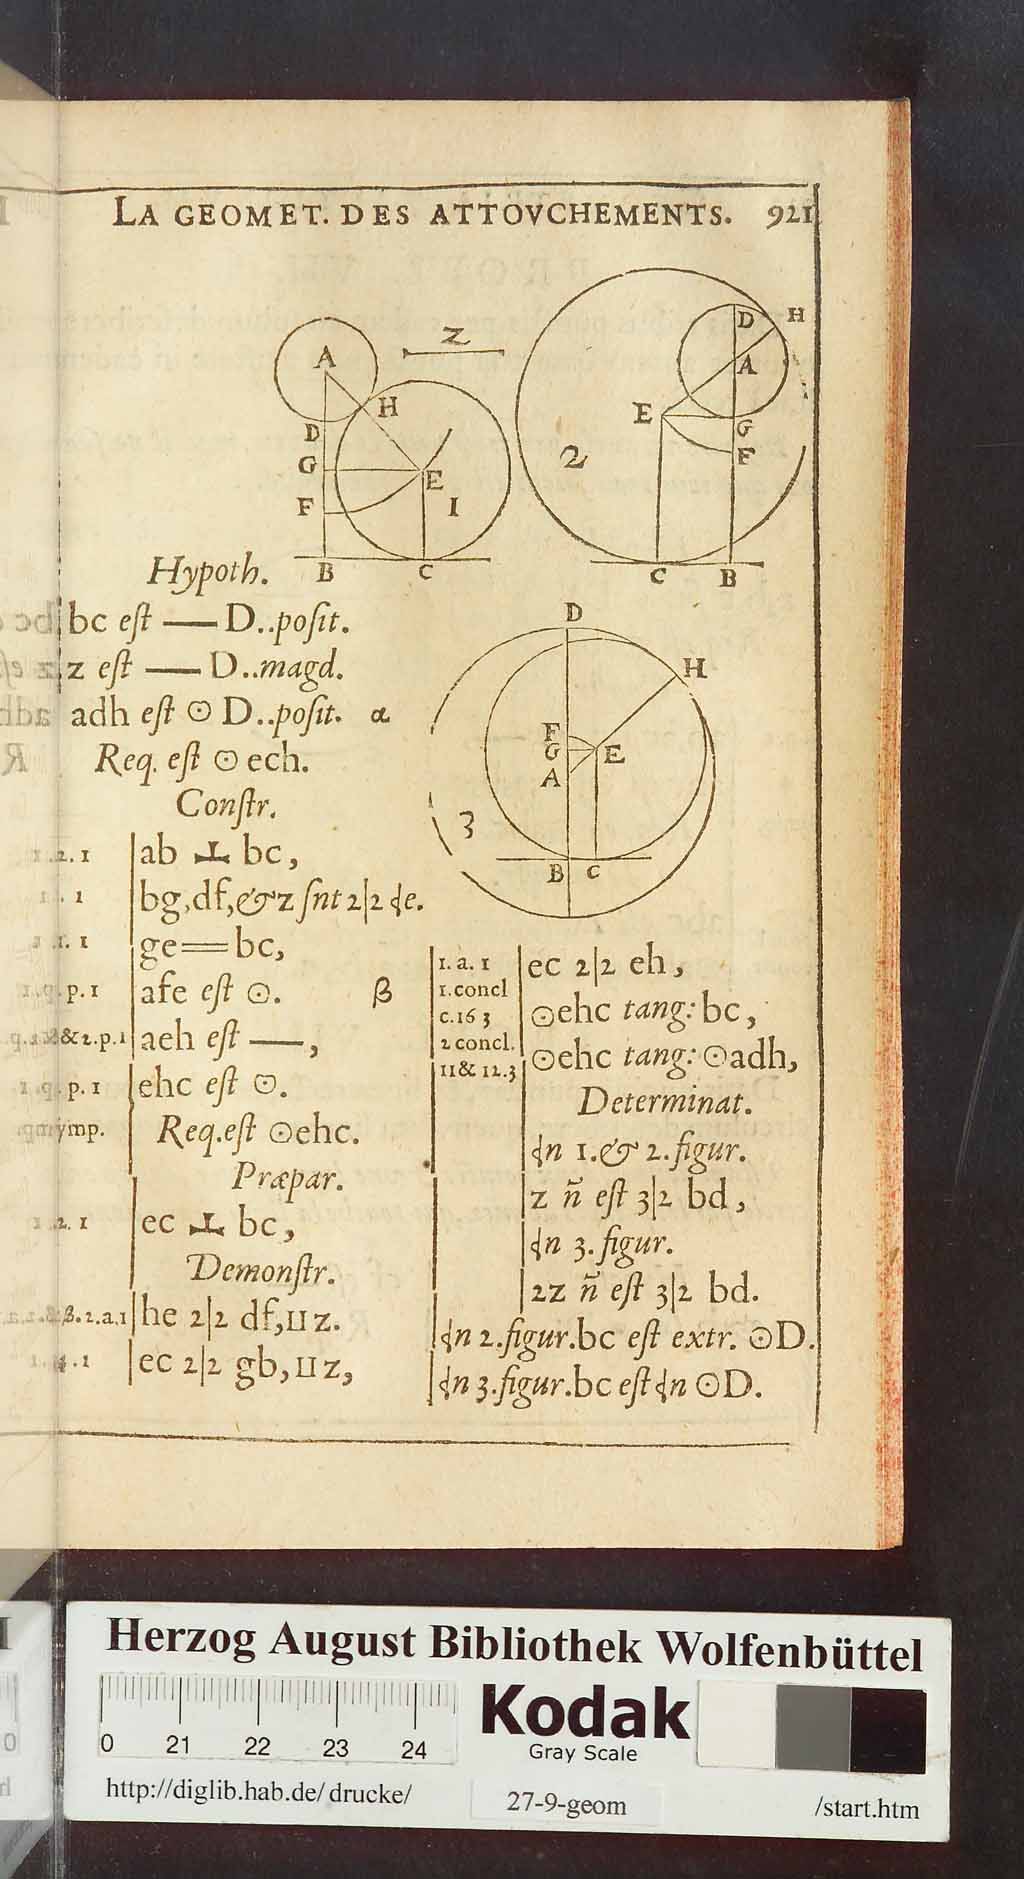 LA GEOMET. DES ATTOVCHEMENTS. 921
A
H
D
G
E
F
1
B
C
Z
D
H
A
E
G
F
2
C
B
D
H
F
G
E
A
3
B
C
Hypoth.
bc est — D..posit.
z est — D..magd.
adh est ⊙ D..posit. α
Req. est ⊙ ech.
Constr.
1.2.1 ab ⊥ bc,
bg,df,&z snt 2|2 de.
ge = bc,
afe est ⊙. β
aeh est —,
ehc est ⊙.
Req.est ⊙ehc.
Præpar.
1.2.1 ec ⊥ bc,
Demonstr.
β.2.a.1 he 2|2 df, ⊔ z.
ec 2|2 gb, ⊔ z,
1. a. 1 ec 2|2 eh,
1.concl
c.16 3 ⊙ehc tang: bc,
2 concl.
11& 12.3 ⊙ehc tang: ⊙adh,
Determinat.
ɖn 1.& 2.figur.
z ñ est 3|2 bd,
ɖn 3. figur.
2z ñ est 3|2 bd.
ɖn 2.figur.bc est extr. ⊙D.
ɖn 3.figur.bc est ɖn ⊙D.
Herzog August Bibliothek Wolfenbüttel
0 21 22 23 24
Kodak
Gray Scale
http://diglib.hab.de/drucke/ 27-9-geom /start.htm